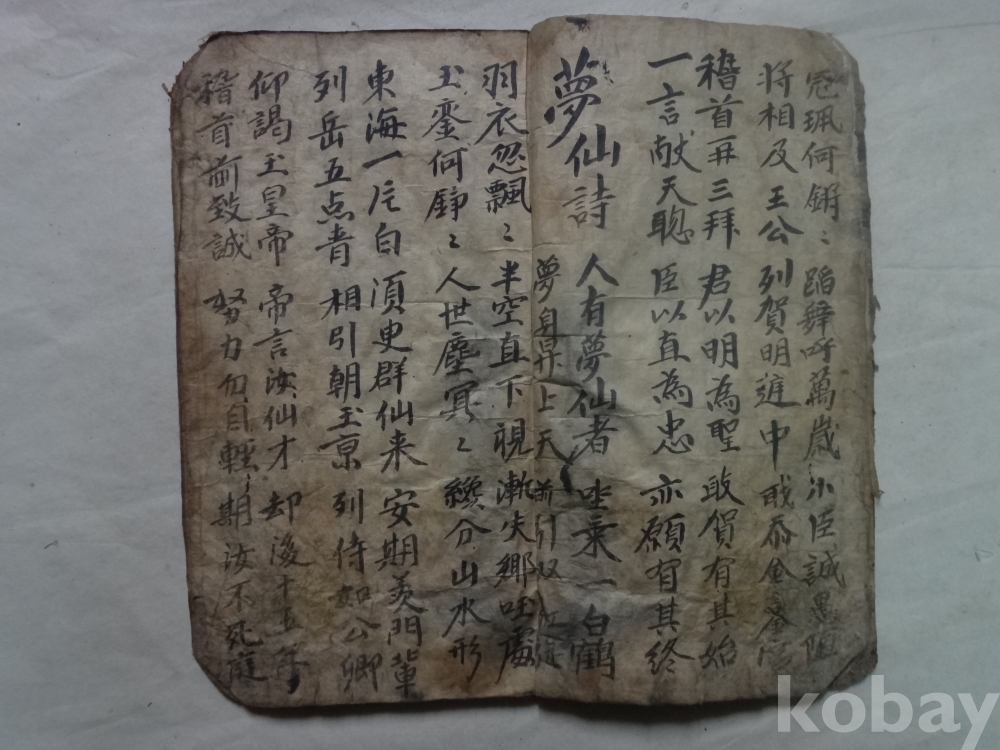 冠珮何鏘〻 蹈舞呼萬歲 小臣誠愚陋
將相及王公 列賀明庭中 職忝金鑾宮
稽首再三拜 君以明為聖 敢賀有其始
一言献天聰 臣以直為忠 亦願有其終
夢仙詩 人有夢仙者 坐乘一白鶴
夢身昇上天 前引双
羽衣忽飄〻 半空直下視 漸失鄉吐處
玉鑾何錚〻 人世塵冥〻 纔分山水形
東海一片白 須臾群仙来 安期羨門輩
列岳五点青 相引朝玉京 列侍如公卿
仰謁玉皇帝 帝言汝仙才 却後十五年
稽首前致誠 努力勿自輕 期汝不死庭
kobay